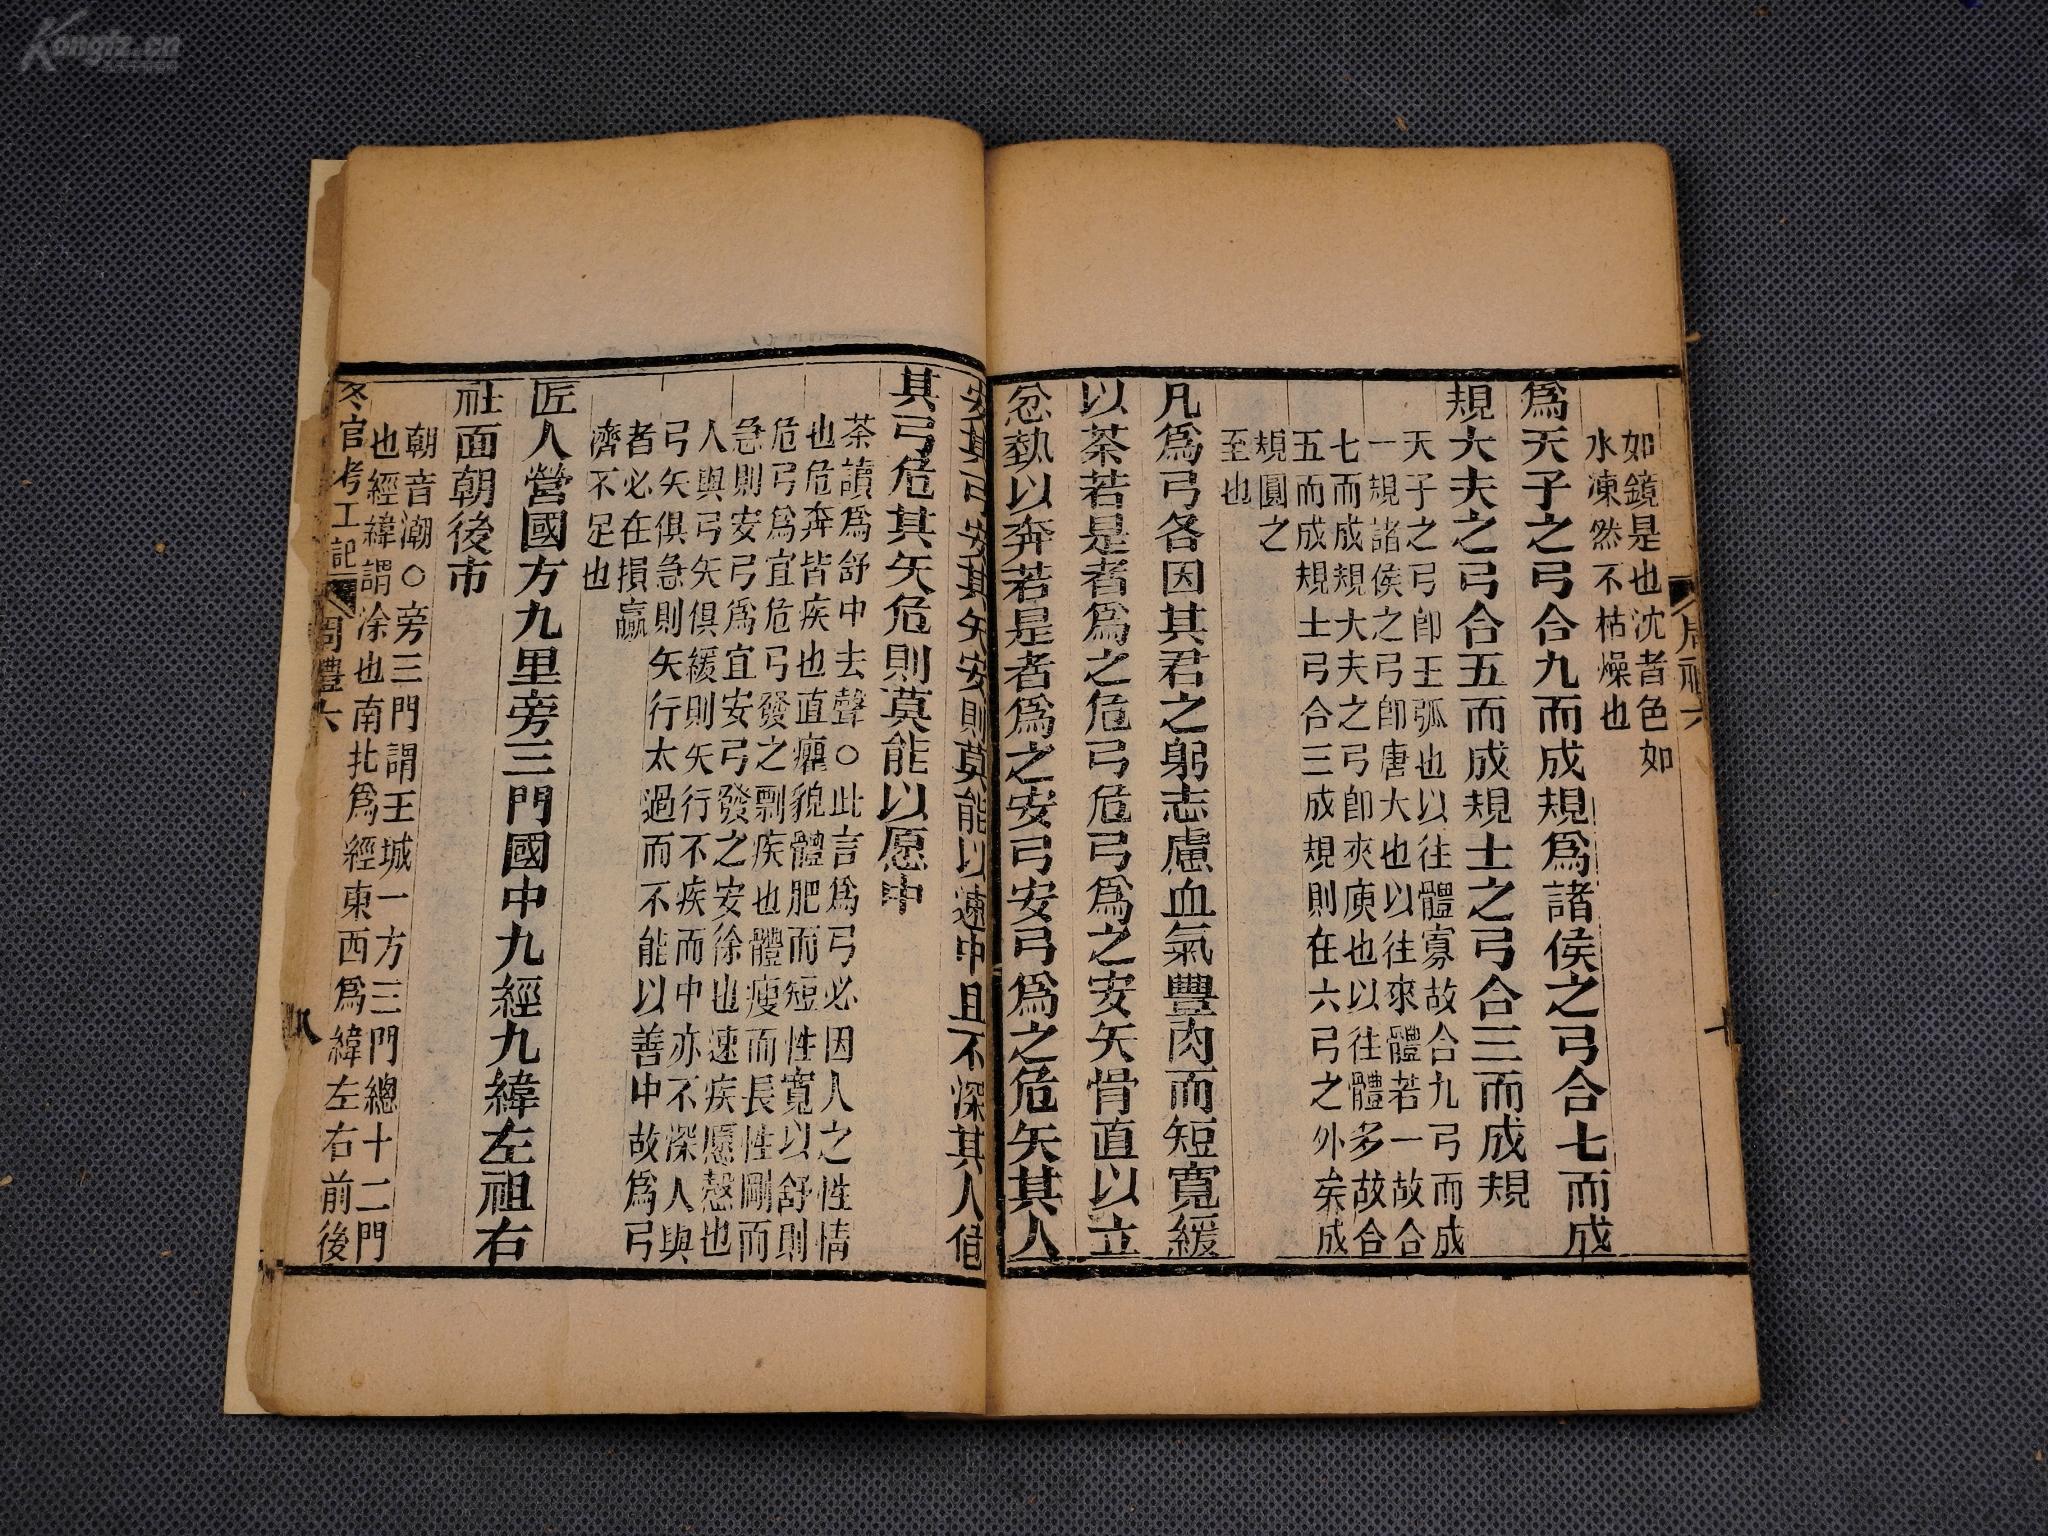 Kongfz.cn
周禮六
十
如鏡是也沈者色如
水凍然不枯燥也
爲天子之弓合九而成規爲諸侯之弓合七而成
規大夫之弓合五而成規士之弓合三而成規
天子之弓卽王弧也以往體寡故合九弓而成
一規諸侯之弓卽唐大也以往來體若一故合
七而成規大夫之弓卽夾庾也以往體多故合
五而成規士弓合三成規則在六弓之外矣成
規圓之
至也
凡爲弓各因其君之躬志慮血氣豐肉而短寬緩
以荼若是者爲之危弓危弓爲之安矢骨直以立
忿埶以奔若是者爲之安弓安弓爲之危矢其人
安其弓安其矢安則莫能以速中且不深其人危
其弓危其矢危則莫能以愿中
荼讀爲舒中去聲○此言爲弓必因人之性情
也危奔皆疾也直癯貌體肥而短性寬以舒則
危弓爲宜危弓發之剽疾也體瘦而長性剛而
急則安弓爲宜安弓發之安徐也速疾愿慤也
人與弓矢俱緩則矢行不疾而中亦不深人與
弓矢俱急則矢行太過而不能以善中故爲弓
者必在損贏
濟不足也
匠人營國方九里旁三門國中九經九緯左祖右
社面朝後市
朝音潮○旁三門謂王城一方三門總十二門
也經緯謂涂也南北爲經東西爲緯左右前後
冬官考工記
周禮六
八